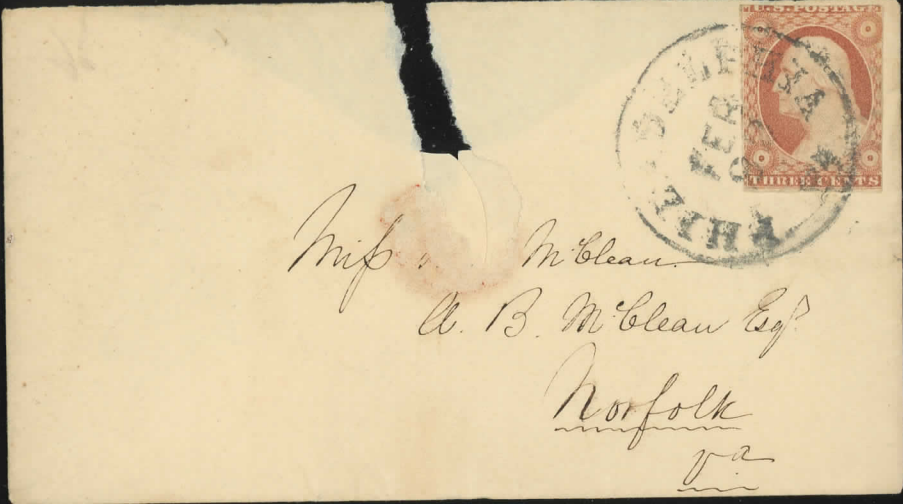 U.S. POSTAGE
THREE CENTS
PHILADELPHIA
FEB
Miss McClean.
A. B. McClean Esqr
Norfolk
Va